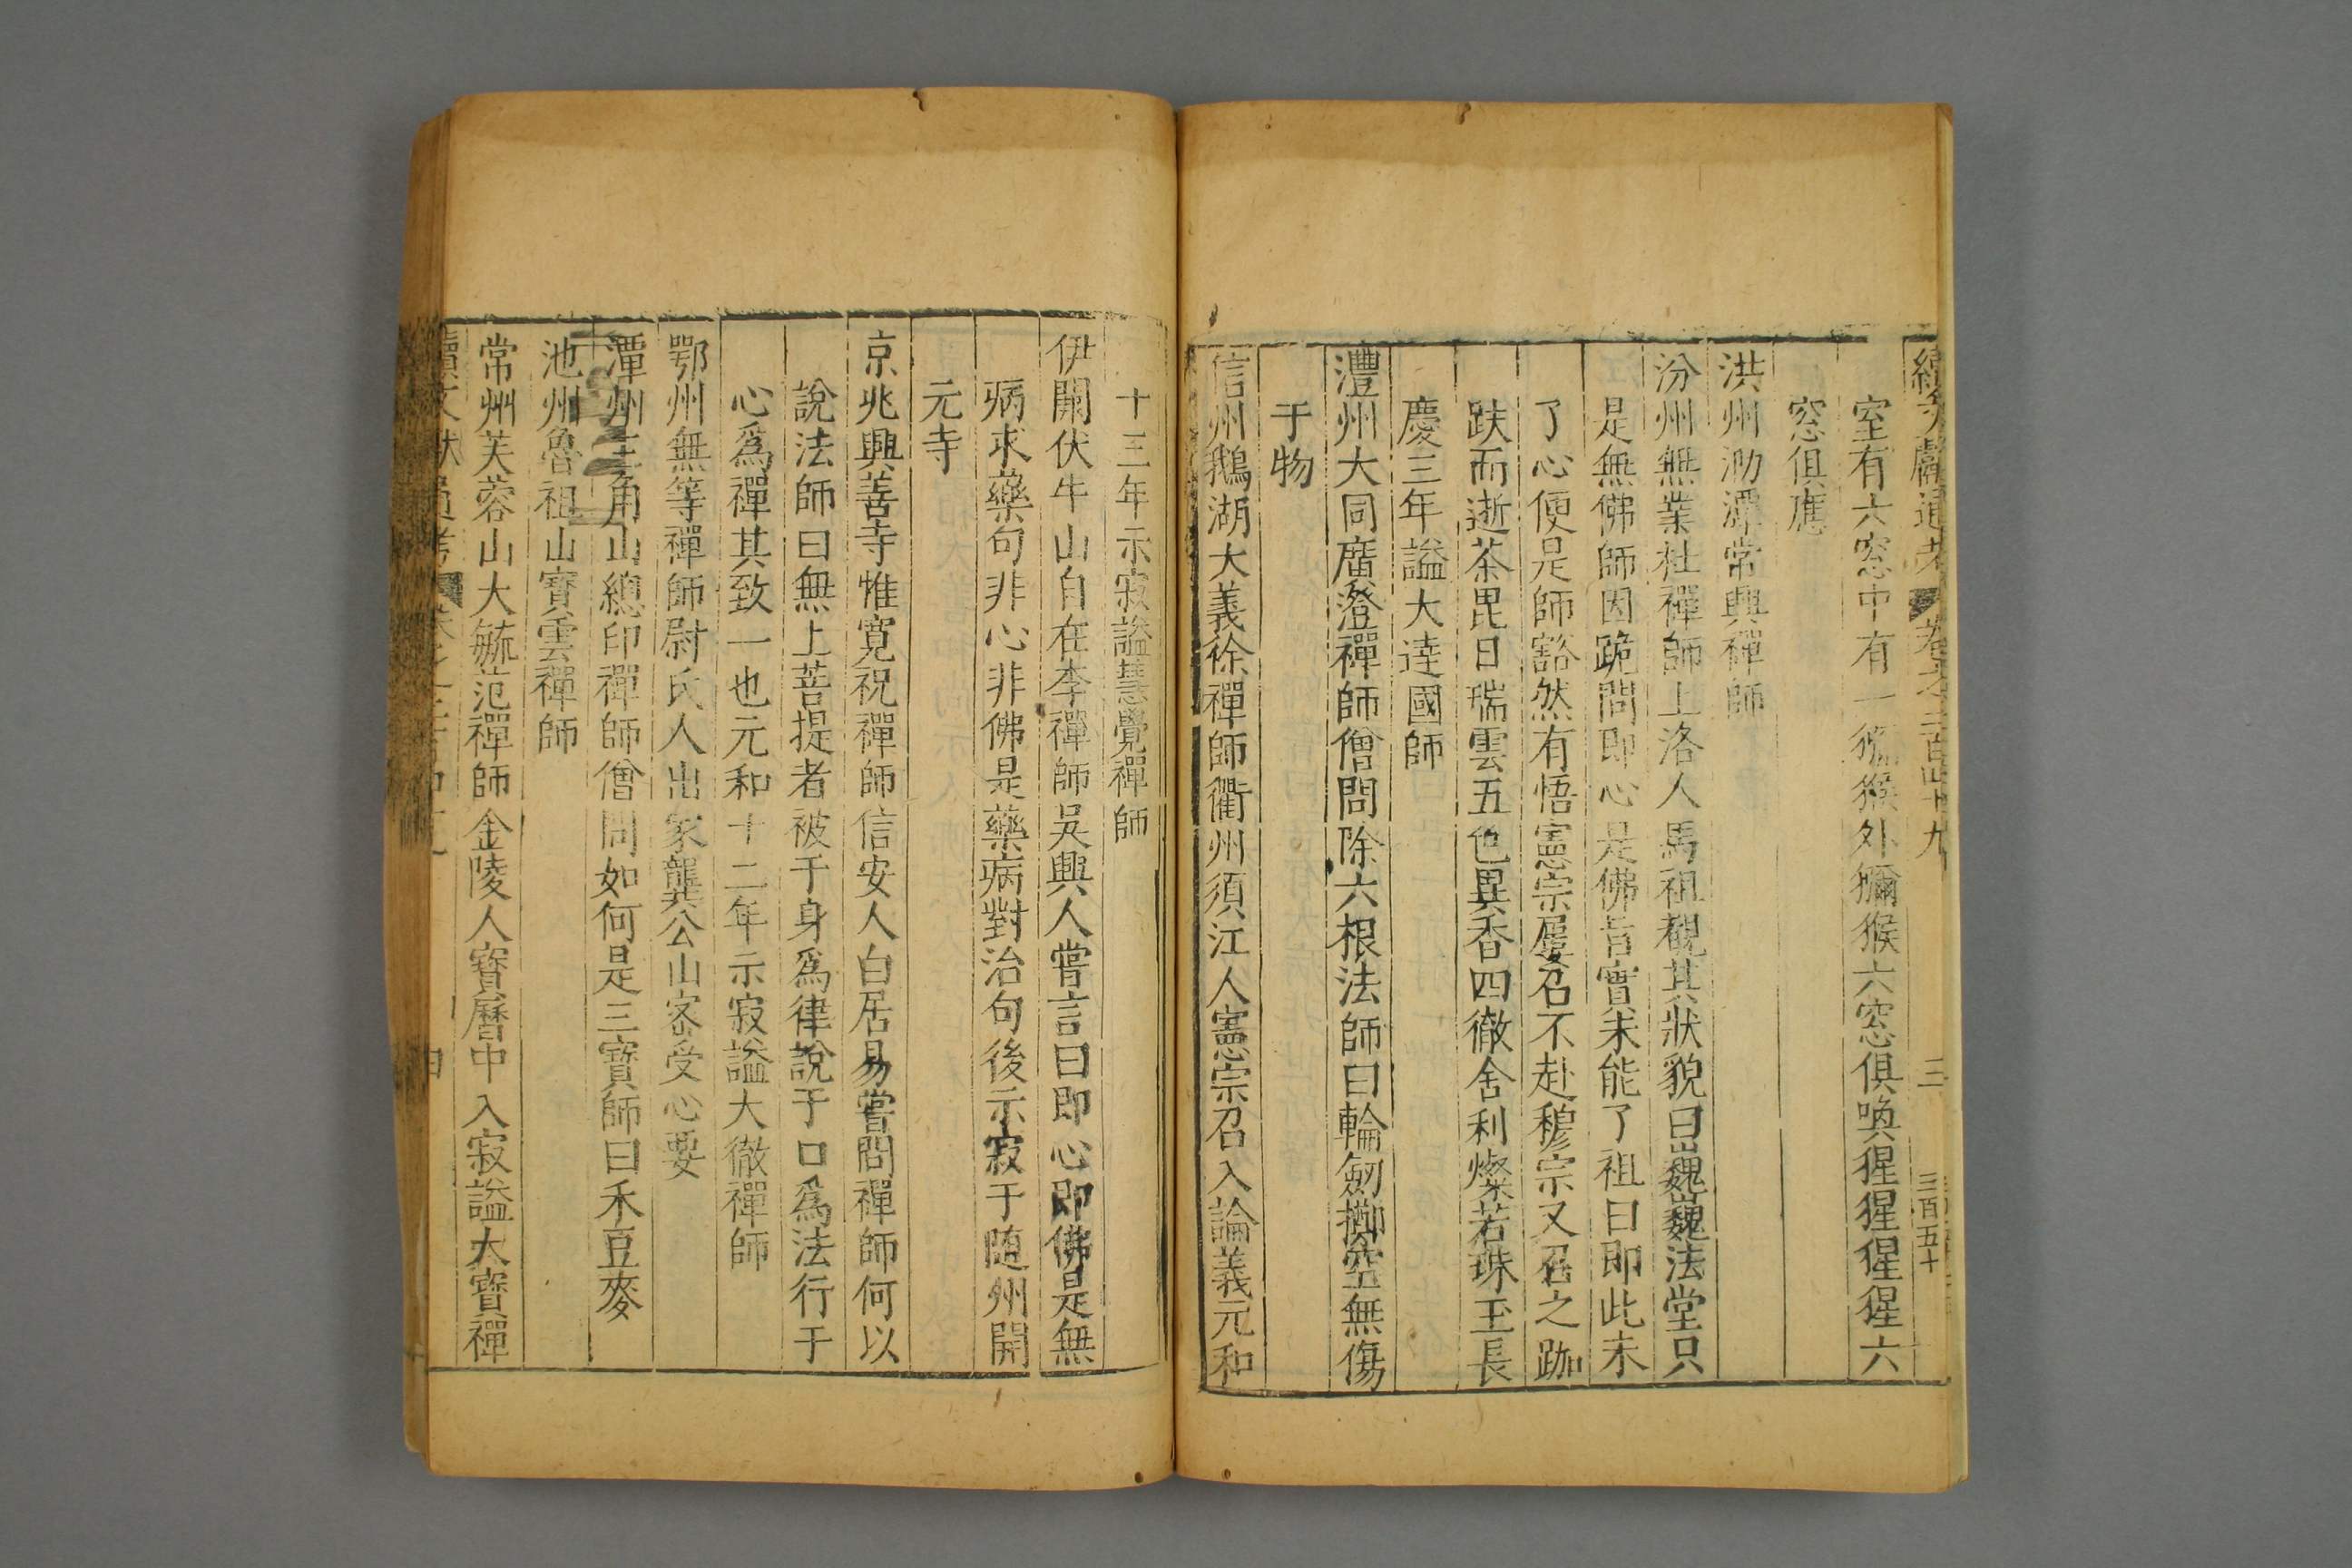 續文獻通考 卷之二百四十九 三 三百五十
室有六窓中有一獼猴外獼猴六窓俱喚猩猩猩猩六
窓俱應
洪州泐潭常興禪師
汾州無業杜禪師上洛人馬祖覩其狀貌曰巍巍法堂只
是無佛師因跪問即心是佛旨實未能了祖曰即此未
了心便是師豁然有悟憲宗屢召不赴穆宗又召之跏
趺而逝茶毘日瑞雲五色異香四徹舍利燦若珠玉長
慶三年謚大達國師
澧州大同廣澄禪師僧問除六根法師曰輪劒擲空無傷
于物
信州鵝湖大義徐禪師衢州須江人憲宗召入論義元和
十三年示寂謚慧覺禪師
伊闕伏牛山自在李禪師吳興人嘗言曰即心即佛是無
病求藥句非心非佛是藥病對治句後示寂于随州開
元寺
京兆興善寺惟寬祝禪師信安人白居易嘗問禪師何以
說法師曰無上菩提者被于身爲律說于口爲法行于
心爲禪其致一也元和十二年示寂謚大徹禪師
鄂州無等禪師尉氏人出家龔公山密受心要
潭州三角山總印禪師僧問如何是三寶師曰禾豆麥
池州魯祖山寶雲禪師
常州芙蓉山大毓范禪師金陵人寶曆中入寂謚大寶禪
續文獻通考